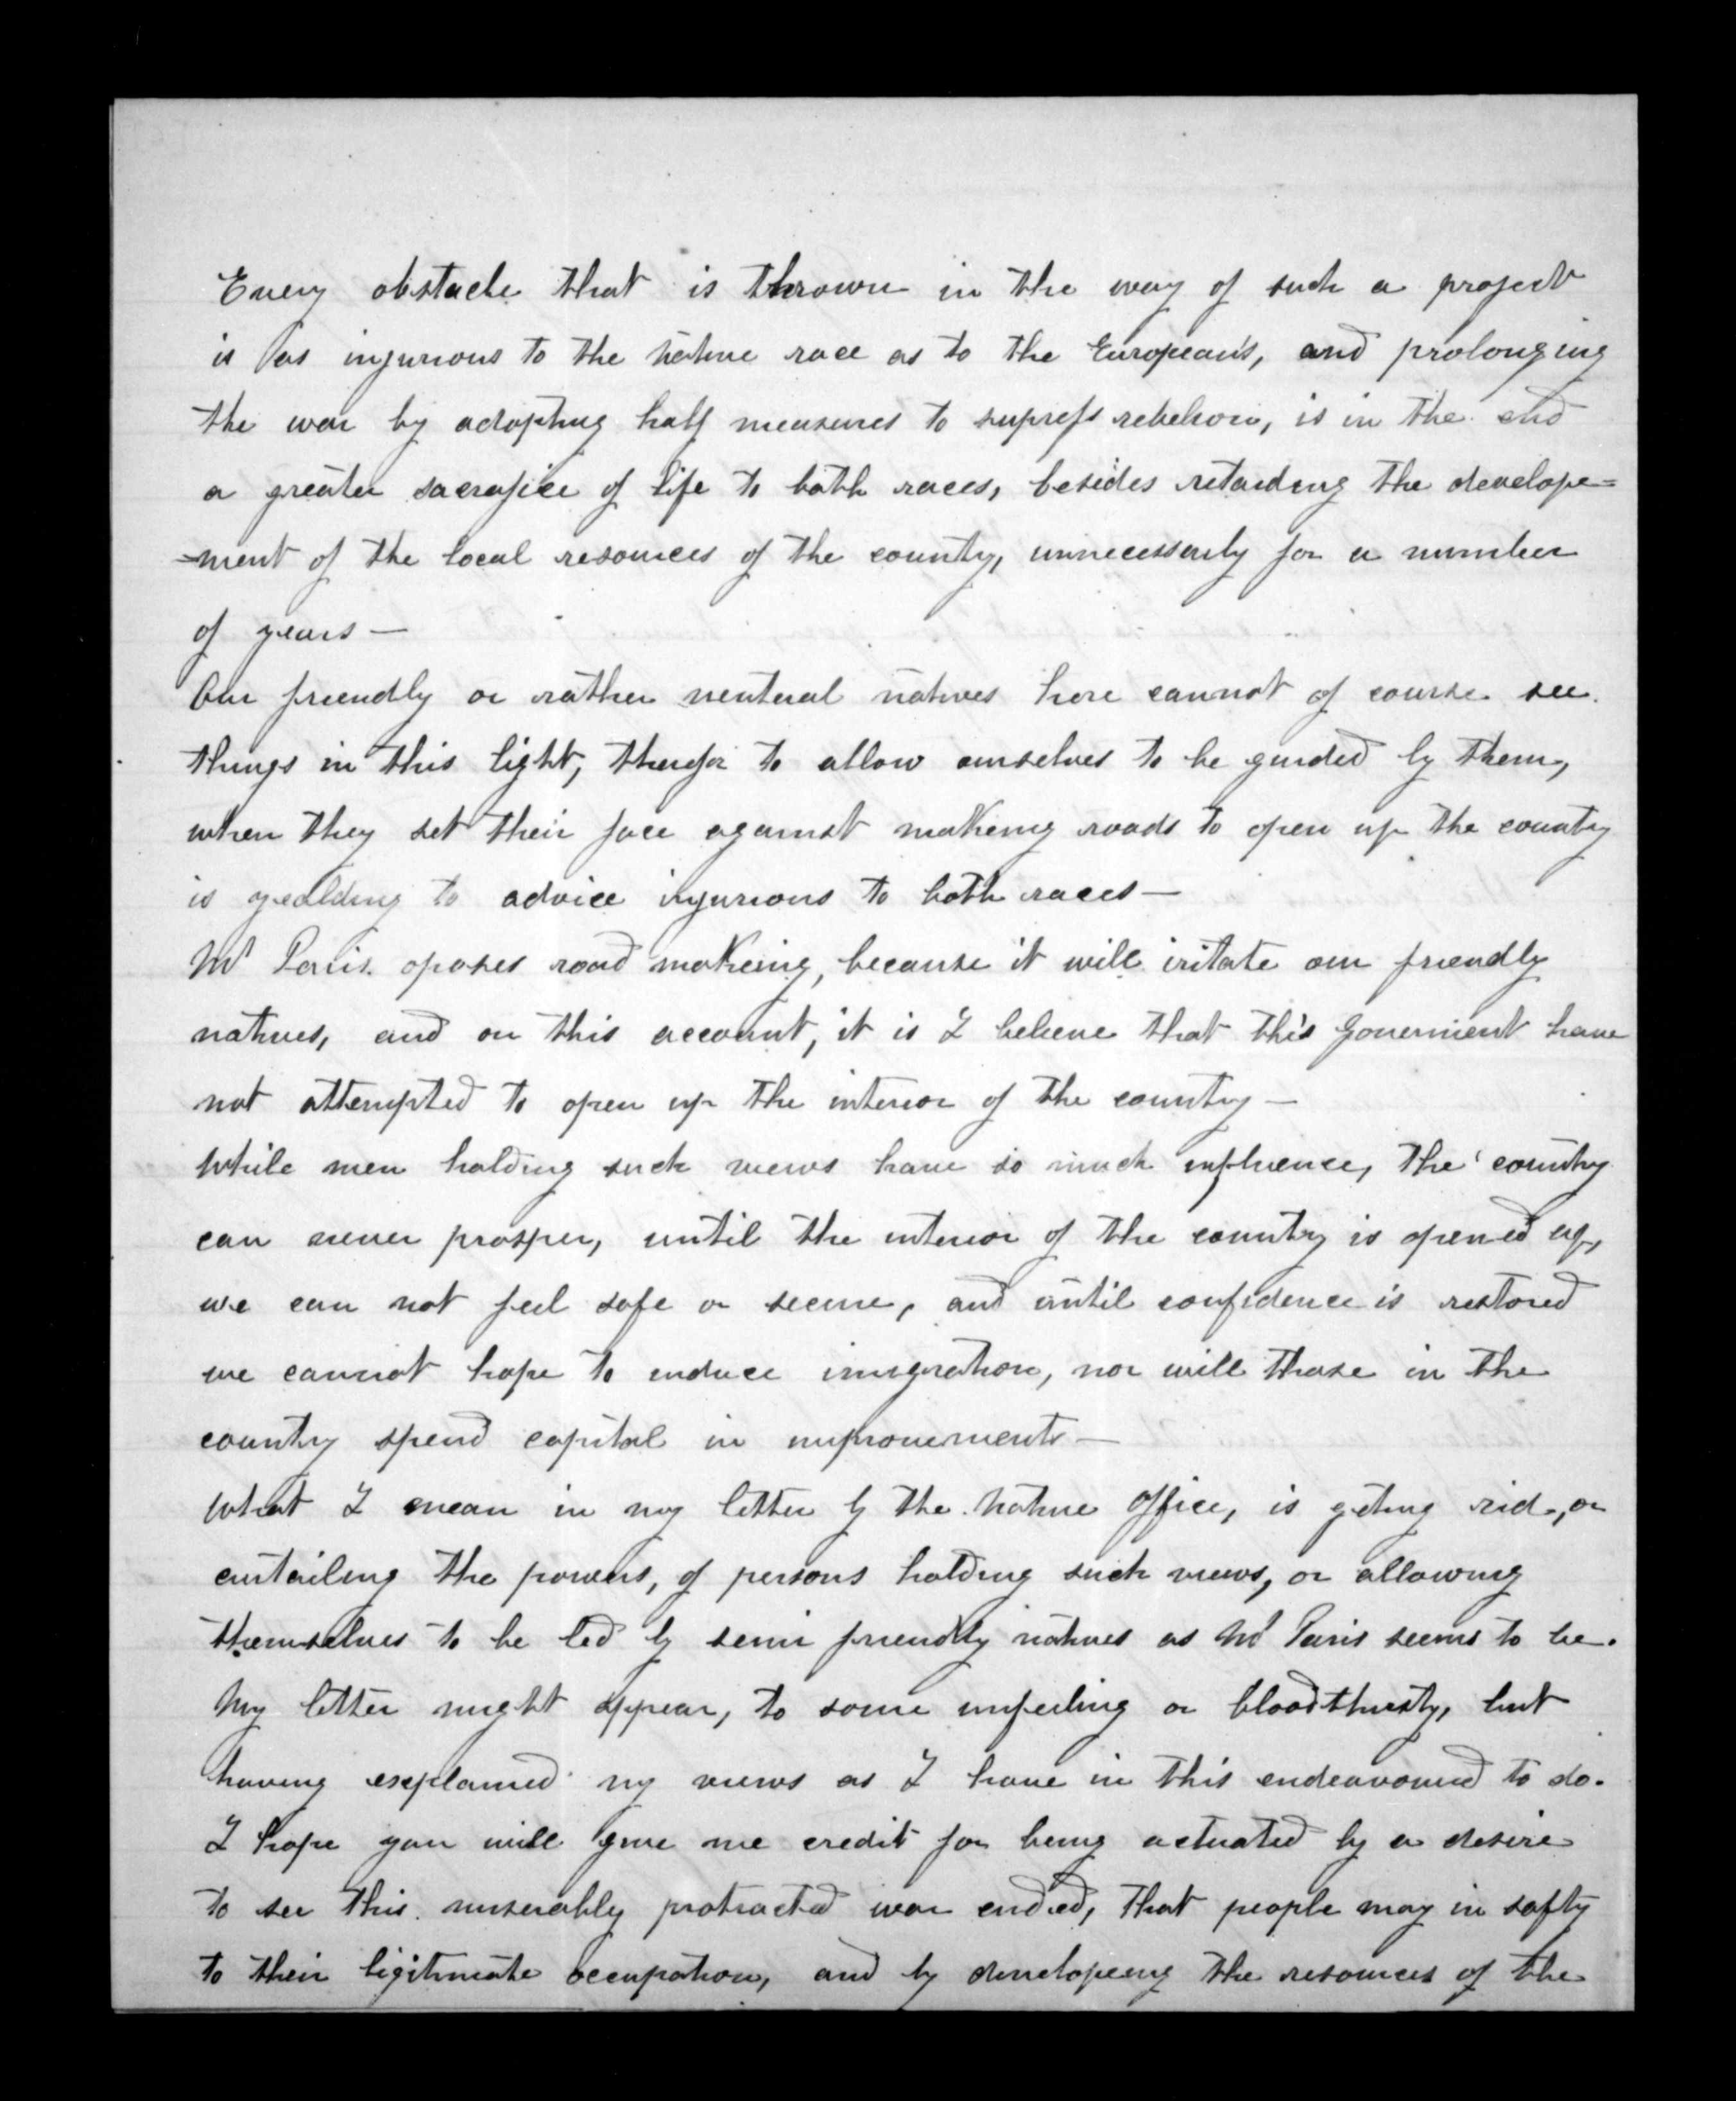 Every obstacle that is thrown in the way of such a project
is as injurious to the Native race as to the European's, and prolonging
the war by adopting half measures to supress rebelion, is in the end
a greater sacrafice of life to both races, besides retarding the develope=
=ment of the local resources of the country, unnecessarily for a number
of years —
Our friendly or rather neuteral natives here cannot of course see
things in this light, therefor to allow ourselves to be guided by them,
when they set their face against makeing roads to open up the country
is yealding to advice injurious to both races —
Mr Parris oposes road makeing, because it will iritate our friendly
natives, and on this account, it is I believe that this Goverment have
not attempted to open up the interior of the country —
While men holding such views have so much influence, the country
can never prosper, until the interior of the country is opened up,
we can not feel safe or secure, and until confidence is restored
we cannot hope to induce imigration, nor will those in the
country spend capital in improvements —
What I mean in my letter by the Native Office, is geting rid, or
curtailing the powers, of persons holding such views, or allowing
themselves to be led by semi friendly natives as Mr Parris seems to be.
My letter might appear, to some unfeeling or bloodthirsty, but
having explained my views as I have in this endeavoured to do.
I hope you will give me credit for being actuated by a desire
to see this miserably protracted war ended, that people may in safty
to their ligitimate occupation, and by developeing the resources of the